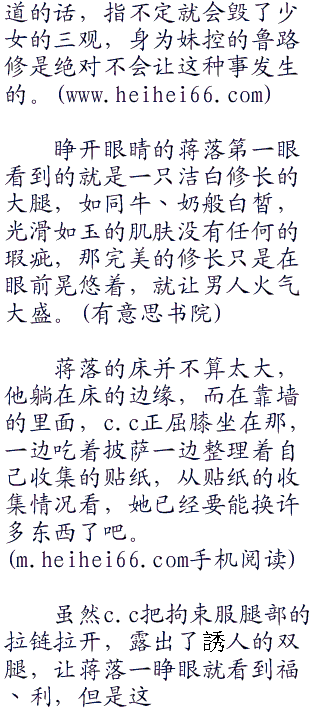 道的话，指不定就会毁了少
女的三观，身为妹控的鲁路
修是绝对不会让这种事发生
的。(www.heihei66.com)
睁开眼睛的蒋落第一眼
看到的就是一只洁白修长的
大腿，如同牛、奶般白皙，
光滑如玉的肌肤没有任何的
瑕疵，那完美的修长只是在
眼前晃悠着，就让男人火气
大盛。(有意思书院)
蒋落的床并不算太大，
他躺在床的边缘，而在靠墙
的里面，c.c正屈膝坐在那，
一边吃着披萨一边整理着自
己收集的贴纸，从贴纸的收
集情况看，她已经要能换许
多东西了吧。
(m.heihei66.com手机阅读)
虽然c.c把拘束服腿部的
拉链拉开，露出了誘人的双
腿，让蒋落一睁眼就看到福
、利，但是这